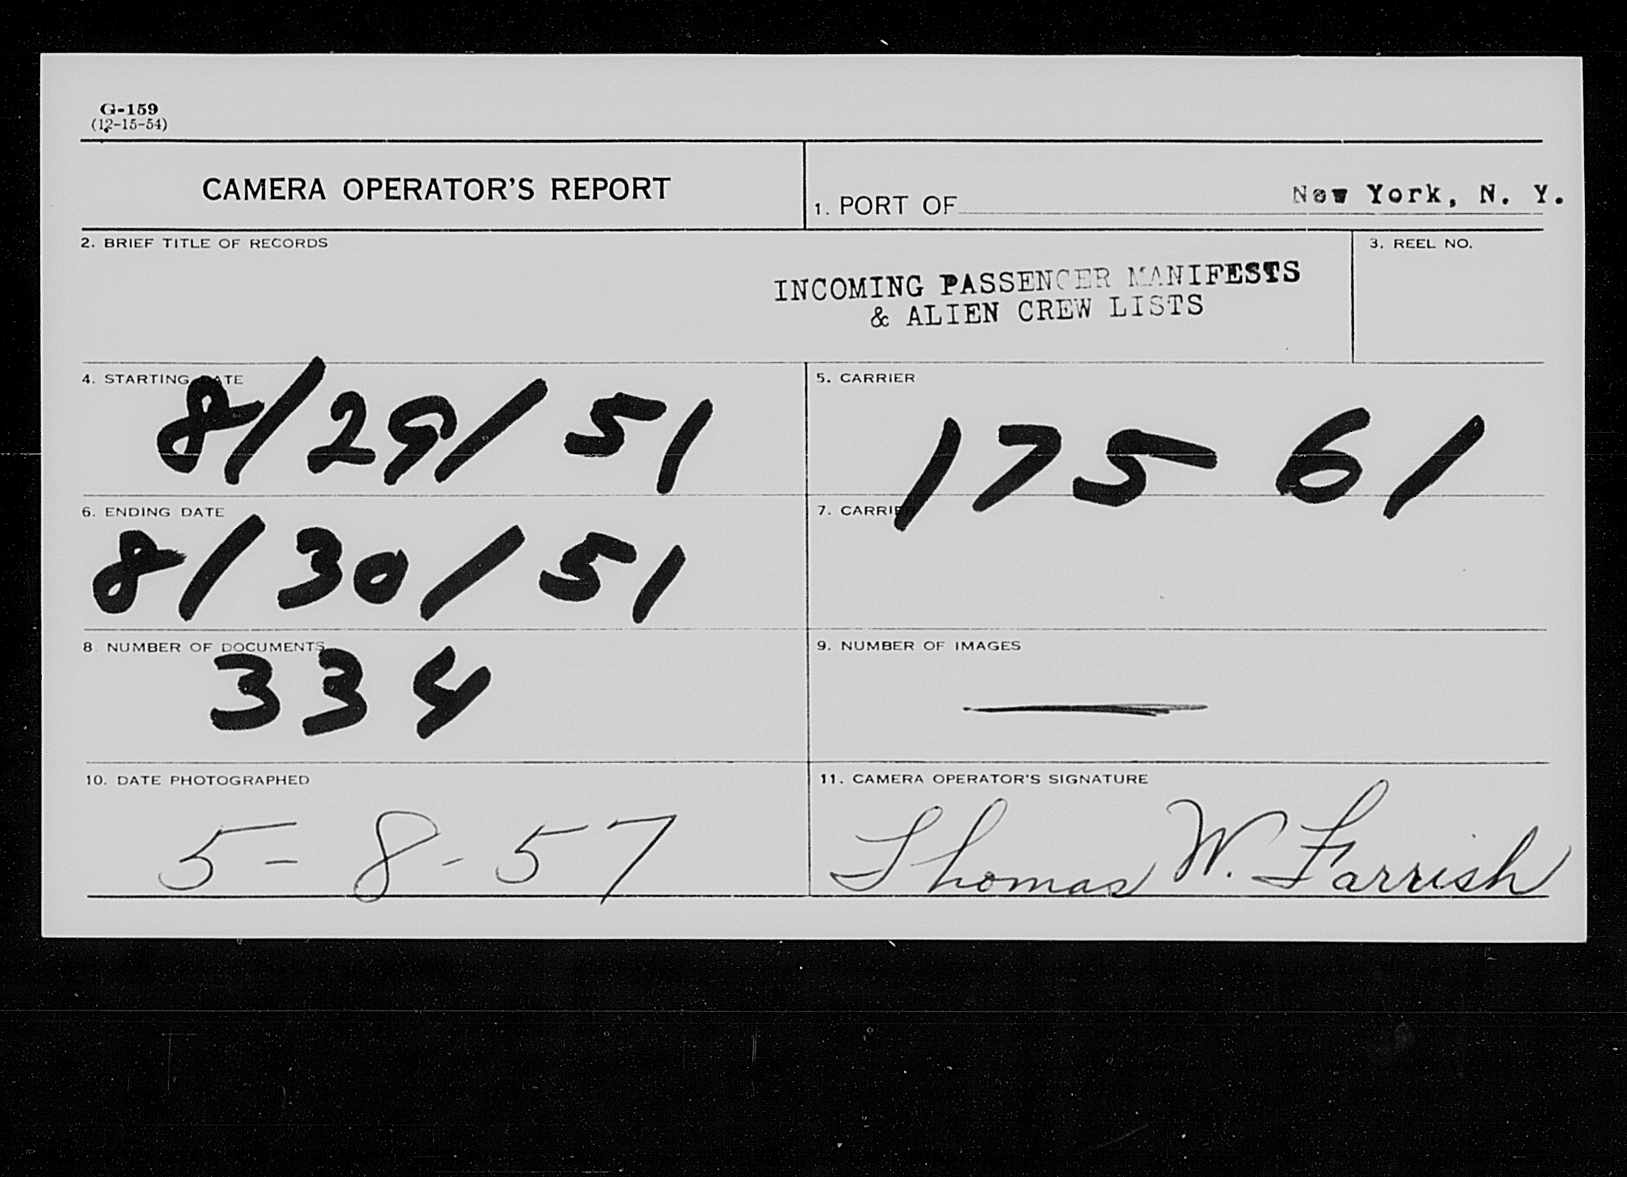 G-159
(12-15-54)
CAMERA OPERATOR'S REPORT
1. PORT OF New York, N. Y.
2. BRIEF TITLE OF RECORDS
INCOMING PASSENGER MANIFESTS
& ALIEN CREW LISTS
3. REEL NO.
4. STARTING DATE
8/29/51
5. CARRIER
17561
6. ENDING DATE
8/30/51
7. CARRIER
8 NUMBER OF DOCUMENTS
334
9. NUMBER OF IMAGES
10. DATE PHOTOGRAPHED
5-8-57
11. CAMERA OPERATOR'S SIGNATURE
Thomas W. Farrish